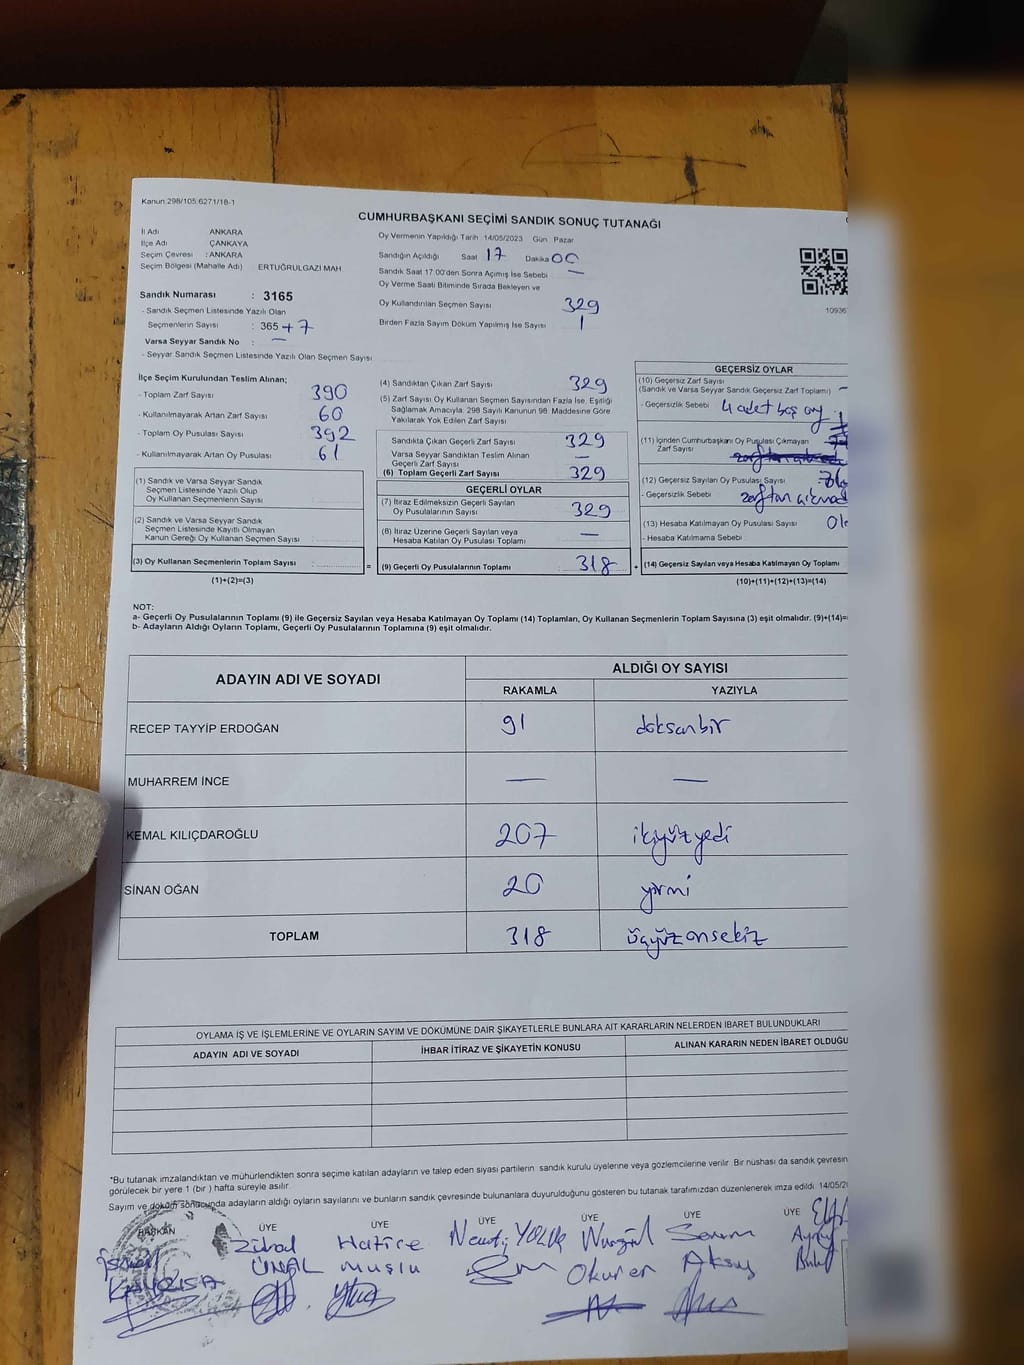 Kanun 298/105;6271/18-1
CUMHURBAŞKANI SEÇİMİ SANDIK SONUÇ TUTANAĞI
İl Adı ANKARA
İlçe Adı ÇANKAYA
Seçim Çevresi : ANKARA
Seçim Bölgesi (Mahalle Adı) ERTUĞRULGAZI MAH
Sandık Numarası : 3165
- Sandık Seçmen Listesinde Yazılı Olan
Seçmenlerin Sayısı : 365 + 7
Varsa Seyyar Sandık No : —
- Seyyar Sandık Seçmen Listesinde Yazılı Olan Seçmen Sayısı
Oy Vermenin Yapıldığı Tarih :14/05/2023 Gün : Pazar
Sandığın Açıldığı Saat 17 Dakika 00
Sandık Saat 17:00'den Sonra Açılmış İse Sebebi —
Oy Verme Saati Bitiminde Sırada Bekleyen ve
Oy Kullandırılan Seçmen Sayısı 329
Birden Fazla Sayım Döküm Yapılmış İse Sayısı 1
10936
İlçe Seçim Kurulundan Teslim Alınan;
- Toplam Zarf Sayısı 390
- Kullanılmayarak Artan Zarf Sayısı 60
- Toplam Oy Pusulası Sayısı 392
- Kullanılmayarak Artan Oy Pusulası 61
(1) Sandık ve Varsa Seyyar Sandık
Seçmen Listesinde Yazılı Olup
Oy Kullanan Seçmenlerin Sayısı
(2) Sandık ve Varsa Seyyar Sandık
Seçmen Listesinde Kayıtlı Olmayan
Kanun Gereği Oy Kullanan Seçmen Sayısı
(3) Oy Kullanan Seçmenlerin Toplam Sayısı :
(1)+(2)=(3)
=
(4) Sandıktan Çıkan Zarf Sayısı 329
(5) Zarf Sayısı Oy Kullanan Seçmen Sayısından Fazla İse, Eşitliği
Sağlamak Amacıyla, 298 Sayılı Kanunun 98. Maddesine Göre
Yakılarak Yok Edilen Zarf Sayısı
Sandıkta Çıkan Geçerli Zarf Sayısı 329
Varsa Seyyar Sandıktan Teslim Alınan
Geçerli Zarf Sayısı —
(6) Toplam Geçerli Zarf Sayısı 329
GEÇERLİ OYLAR
(7) İtiraz Edilmeksizin Geçerli Sayılan
Oy Pusulalarının Sayısı 329
(8) İtiraz Üzerine Geçerli Sayılan veya
Hesaba Katılan Oy Pusulası Toplamı —
(9) Geçerli Oy Pusulalarının Toplamı 318
+
GEÇERSİZ OYLAR
(10) Geçersiz Zarf Sayısı
(Sandık ve Varsa Seyyar Sandık Geçersiz Zarf Toplamı) —
- Geçersizlik Sebebi 4 adet boş oy
(11) İçinden Cumhurbaşkanı Oy Pusulası Çıkmayan
Zarf Sayısı
(12) Geçersiz Sayılan Oy Pusulası Sayısı
- Geçersizlik Sebebi zarftan
(13) Hesaba Katılmayan Oy Pusulası Sayısı
- Hesaba Katılmama Sebebi
(14) Geçersiz Sayılan veya Hesaba Katılmayan Oy Toplamı
(10)+(11)+(12)+(13)=(14)
NOT:
a- Geçerli Oy Pusulalarının Toplamı (9) ile Geçersiz Sayılan veya Hesaba Katılmayan Oy Toplamı (14) Toplamları, Oy Kullanan Seçmenlerin Toplam Sayısına (3) eşit olmalıdır. (9)+(14)=
b- Adayların Aldığı Oyların Toplamı, Geçerli Oy Pusulalarının Toplamına (9) eşit olmalıdır.
ADAYIN ADI VE SOYADI ALDIĞI OY SAYISI
RAKAMLA YAZIYLA
RECEP TAYYİP ERDOĞAN 91 doksanbir
MUHARREM İNCE — —
KEMAL KILIÇDAROĞLU 207 ikiyüzyedi
SİNAN OĞAN 20 yirmi
TOPLAM 318 üçyüzonsekiz
OYLAMA İŞ VE İŞLEMLERİNE VE OYLARIN SAYIM VE DÖKÜMÜNE DAİR ŞİKAYETLERLE BUNLARA AİT KARARLARIN NELERDEN İBARET BULUNDUKLARI
ADAYIN ADI VE SOYADI İHBAR İTİRAZ VE ŞİKAYETİN KONUSU ALINAN KARARIN NEDEN İBARET OLDUĞU
*Bu tutanak imzalandıktan ve mühürlendikten sonra seçime katılan adayların ve talep eden siyasi partilerin sandık kurulu üyelerine veya gözlemcilerine verilir. Bir nüshası da sandık çevresin
görülecek bir yere 1 (bir) hafta süreyle asılır.
Sayım ve döküm sonucunda adayların aldığı oyların sayılarını ve bunların sandık çevresinde bulunanlara duyurulduğunu gösteren bu tutanak tarafımızdan düzenlenerek imza edildi. 14/05/20
BAŞKAN ÜYE ÜYE ÜYE ÜYE ÜYE ÜYE
İsmail Zühal Hatice Nurgül Aynur
ÜNAL MUŞLU Okurer Aksoy Bulut